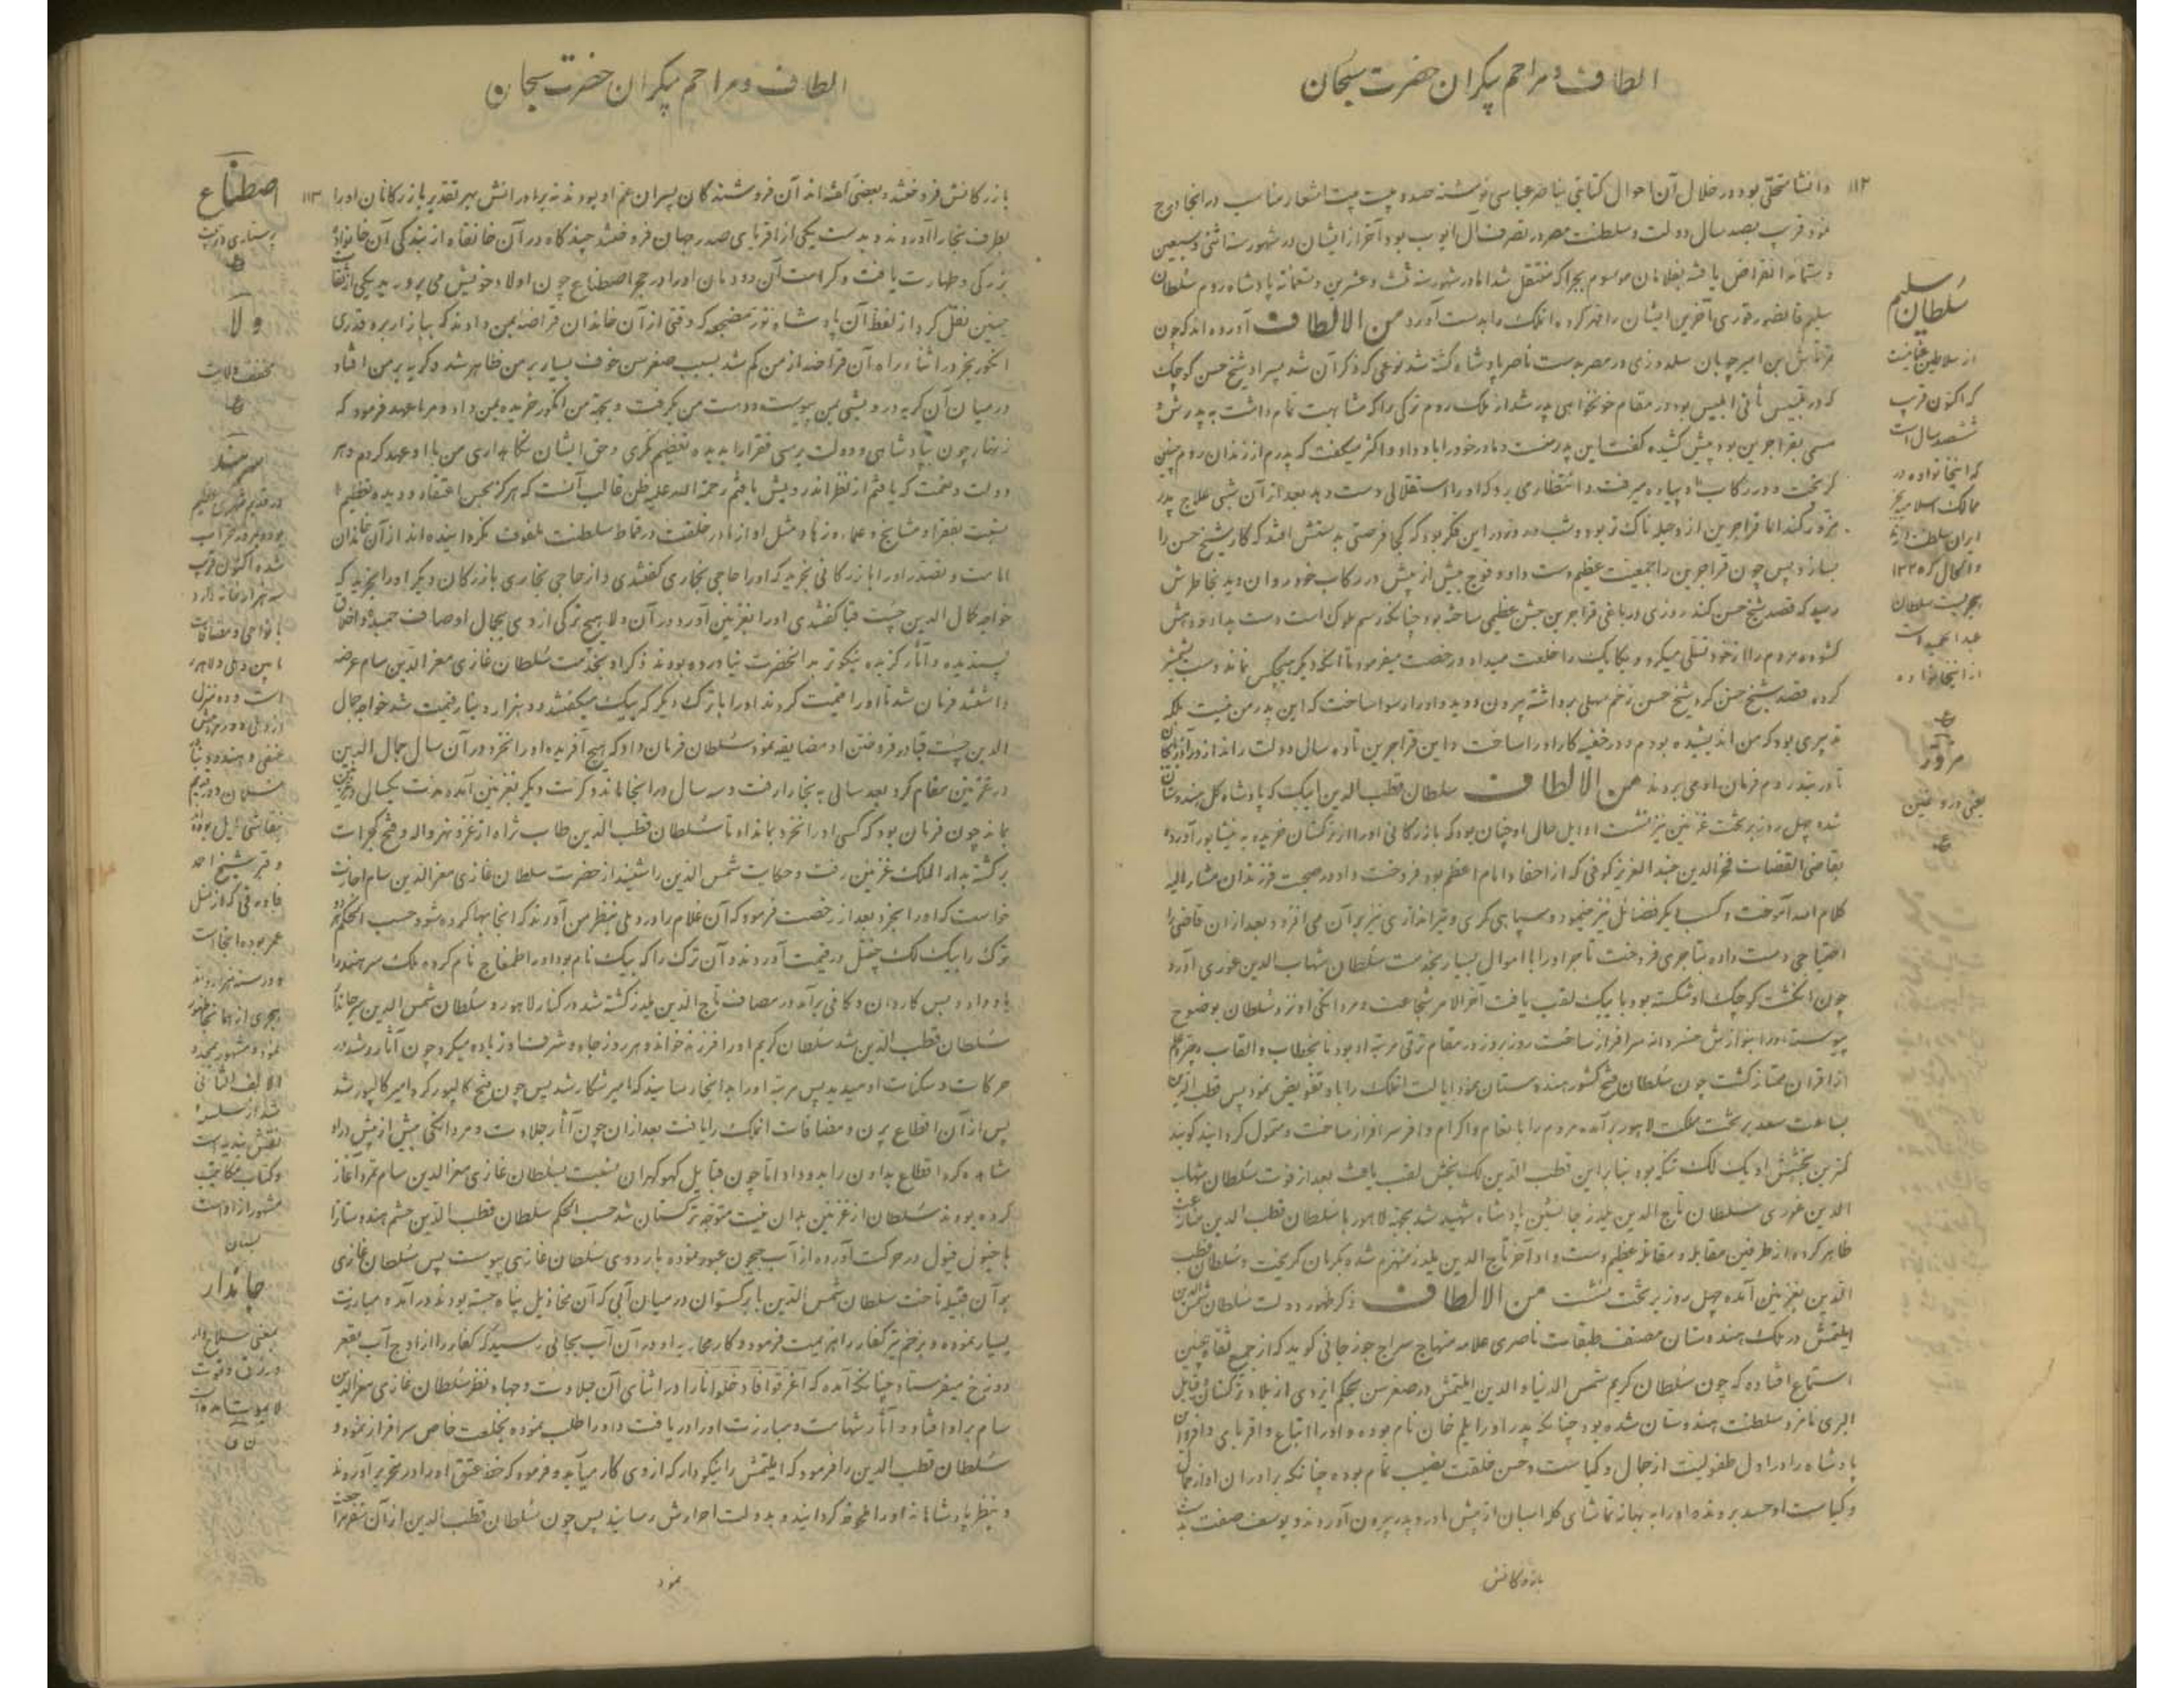 الطاف و مراحم بیکران حضرت سبحان
۱۱۲
و انشا متحلّی بود در خلال آن احوال کتابتی بناصر عباسی نوشته صد و بیست بیت اشعار مناسب در انجا درج
نمود قریب بصد سال دولت و سلطنت مصر در تصرف آل ایوب بود آخر از ایشان در شهور سنه اثنی و سبعین
و ستمائه انقراض یافته بغلامان موسوم بچراکه منتقل شد اما در شهور سنه ثلث و عشرین و تسعمائه پادشاه روم سُلطان
سلیم قانصور غوری آخرین ایشان را قهر کرده انملک را بدست آورد من الالطاف آورده اند که چون
بن امیر چوبان سلدوزی در مصر بدست ناصر پادشاه کشته شد بنوعی که ذکر آن شد پسر او شیخ حسن کوچک
که در تلبیس ثانی ابلیس بود در مقام خونخواهی پدر شد از ملک روم ترکی را که مشابهت تمام داشت به پدرش و
مسمی بقراجرین بود پیش کشیده گفت این پدر منست و مادر خود را باو داد و اکثر میگفت که پدرم از زندان روم چنین
گریخت و در رکاب او پیاده میرفت و انتظار می برد که او را استقلالی دست دهد بعد از آن شبی علاج پدر
مزور کند اما قراجرین از دجله ناک تر بود و شب و روز در این فکر بود که کجا فرصتی بدستش افتد که کار شیخ حسن را
بسازد پس چون قراجرین را جمعیت عظیم دست داد و فوج بیش از پیش در رکاب خود روان دید بخاطرش
رسید که قصد شیخ حسن کند روزی در باغی قراجرین جشن عظیمی ساخته بود چنانکه رسم ملوک است دست بداد و دهش
گشوده مردم را از خود تسلی میکرد و یکایک را خلعت میداد و رخصت میفرمود تا انکه دیگر هیچکس نماند دست بشمشیر
کرده قصد شیخ حسن کرد شیخ حسن زخم مهلی برداشته بیرون دوید و او را رسوا ساخت که این پدر من نیست بلکه
تدبیری بود که من اندیشیده بودم و در خفیه کار او را ساخت و این قراجرین تا ده سال دولت راند از در آذربایجان
تا در بند روم فرمان او می بردند من الالطاف سلطان قطب الدین ایبک که پادشاه کل هندوستان
شده چهل روز بر تخت غزنین نیز نشست اوایل حال او چنان بود که بازرگانی او را از ترکستان خریده به نیشابور آورده
بقاضی القضات فخر الدین عبد العزیز کوفی که از احفاد امام اعظم بود فروخت و او در صحبت فرزندان مشار الیه
کلام الله آموخت و کسب دیگر فضائل نیز مینمود و سپاهی گری و تیراندازی نیز بر آن می افزود بعد از ان قاضی را
احتیاجی دست داده بتاجری فروخت تاجر او را با اموال بسیار بخدمت سُلطان شهاب الدین غوری آورد
چون انگشت کوچک او شکسته بود بایبک لقب یافت آخر الامر شجاعت و مردانگی او نزد سُلطان بوضوح
پیوست او را بنوازش خسروانه سرافراز ساخت روز بروز در مقام ترقی مرتبه او بود تا بخطاب و القاب و چتر و علم
از اقران ممتاز گشت چون سُلطان فتح کشور هندوستان نمود ایالت انملک را باو تفویض نمود پس قطب الدین
بساعت سعد بر تخت مملکت لاهور برآمده مردم را بانعام و اکرام وافر سرافراز ساخت و متمول گردانید گویند
کمترین بخشش او یک لک تنکه بود بنابر این قطب الدین لک بخش لقب یافت بعد از فوت سُلطان شهاب
الدین غوری سُلطان تاج الدین یلدز جانشین پادشاه شهید شد بجهة لاهور با سُلطان قطب الدین منازعت
ظاهر کرده از طرفین مقابله و مقاتله عظیم دست داد آخر تاج الدین یلدز منهزم شده بکرمان گریخت و سُلطان قطب
الدین بغزنین آمده چهل روز بر تخت نشست من الالطاف ذکر ظهور دولت سُلطان شمس الدین
ایلتمش در ملک هندوستان مصنف طبقات ناصری علامه منهاج سراج جوزجانی گوید که از جمع ثقاة چنین
استماع افتاده که چون سُلطان کریم شمس الدنیا و الدین ایلتمش در صغر سن بحکم ایزدی از بلاد ترکستان و قبایل
البری نامزد سلطنت هندوستان شده بود چنانکه پدر او را ایلم خان نام بوده و او را اتباع و اقربای و افروان
پادشاه را در اول طفولیت از جمال و کیاست و حسن خلقت نصیب تمام بوده چنانکه برادران او از جمال
و کیاست او حسد بردند و او را به بهانه تماشای گله اسبان از پیش مادر و پدر بیرون آوردند و یوسف صفت بدست
بازرگانش
سُلطان سلیم
از سلاطین عثمانیست
که اکنون قریب
ششصد سال است
که اینخانواده در
ممالک اسلامیه بجز
ایران سلطنت دارند
و الحال که ۱۳۲۵
هجریست سلطان
عبد الحمید است
از اینخانواده
مزوّر
یعنی دروغین
الطاف و مراحم بیکران حضرت سبحان
۱۱۳
بازرگانش فروختند و بعضی گفته اند آن فروشندگان پسران عم او بودند نه برادرانش بهر تقدیر بازرگانان او را
بطرف بخارا آوردند و بدست یکی از اقربای صدر جهان فروختند چندگاه در آن خانقاه از بندگی آن خانواده
بزرگی و طهارت یافت و کرامت آن دودمان او را در حجر اصطناع چون اولاد خویش می پرورید یکی از ثقات
چنین نقل کرد از لفظ آن پادشاه نوّر مضجعه که وقتی از آن خاندان قراضه بمن دادند که ببازار برو قدری
انگور بخر در اثناء راه آن قراضه از من گم شد بسبب صغر سن خوف بسیار بر من ظاهر شد و گریه بر من افتاد
در میان آن گریه درویشی بمن پیوست و دست من بگرفت و بجهة من انگور خریده بمن داد و مرا عهد فرمود که
زنهار چون بپادشاهی و دولت برسی فقرا را بدیده تعظیم نگری و حق ایشان نگاهداری من با او عهد کردم و هر
دولت و نعمت که یافتم از نظر اندرویش یافتم رحمة الله علیه ظن غالب آنست که هرگز بحسن اعتقاد و دیده تعظیم
نسبت بفقرا و مشایخ و علماء و زها و مثل او از مادر خلقت در قماط سلطنت ملفوف نگردانیده اند از آن خاندان
امامت و تصدر او را بازرگانی بخرید که او را حاجی بخاری گفتندی و از حاجی بخاری بازرگان دیگر او را بخرید که
خواجه کال الدین چُست قبا گفتندی او را بغزنین آورد در آن ولا هیچ ترکی از وی بجمال اوصاف حمیده و اخلاق
پسندیده و آثار گزیده نیکوتر بدانحضرت نیاورده بودند ذکر او بخدمت سُلطان غازی معز الدین سام عرضه
داشتند فرمان شد تا او را قیمت کردند او را با ترک دیگر که بیک میگفتند دو هزار دینار قیمت شد خواجه جمال
الدین چُست قبا در فروختن او مضایقه نمود سُلطان فرمان داد که هیچ آفریده او را نخرد در آن سال جمال الدین
در غزنین مقام کرد بعد سالی به بخارا رفت و سه سال در انجا ماند و کرت دیگر بغزنین آمده مدت یکسالی در غزنین
بماند چون فرمان بود که کسی او را نخرد بماند او تا سُلطان قطب الدین طاب ثراه از غزو نهرواله و فتح گجرات
برگشته بدار الملک غزنین رفت و حکایت شمس الدین را شنید از حضرت سلطان غازی معز الدین سام اجازت
خواست که او را بخرد بعد از رخصت فرمود که آن غلام را در دهلی بنظر من آورند که انجا بها کرده شود حسب الحکم هر دو
ترک را بیک لک چیتل در قیمت آوردند و آن ترک را که بیک نام بود او را طمغاج نام کرده ملک سرهند را
باو داد و بس کاردان و کافی برآمد در مصاف تاج الدین یلدز کشته شد در کنار لاهور و سُلطان شمس الدین سرجاندار
سُلطان قطب الدین شد سُلطان کریم او را فرزند خواند و هر روز جاه و شرف او زیاده میکرد و چون آثار رشد در
حرکات و سکنات او میدید پس مرتبه او را بدانجا رسانید که امیر شکار شد پس چون فتح کالپور کرد امیر کالپور شد
پس از آن اقطاع برن و مضافات انملک را یافت بعد از ان چون آثار جلادت و مردانگی بیش از پیش در او
مشاهده کرد اقطاع بداون را بدو داد اما چون قبایل کهوکهران نسبت بسُلطان غازی معز الدین سام تمرد آغاز
کرده بودند سُلطان از غزنین بدان نیت متوجه ترکستان شد حسب الحکم سلطان قطب الدین حشم هندوستان را
با خیول فیول در حرکت آورده از آب جیحون عبور نموده باردوی سُلطان غازی پیوست پس سُلطان غازی
بر آن قبیله تاخت سلطان شمس الدین با برگستوان در میان آبی که آن مخاذیل پناه جسته بودند در آمده مبارزت
بسیار نموده و بزخم تیر کفار را هزیمت فرمود و کار محاربه او در آن آب بجائی رسید که کفار را از اوج آب بقعر
دوزخ میفرستاد چنانکه آمده که اُغرقوا فادخلوا نارا در اثنای آن جلادت و جهاد نظر سُلطان غازی معز الدین
سام بر او افتاد و آثار شهامت و مبارزت او را دریافت و او را طلب نموده بخلعت خاص سرافراز نمود و
سُلطان قطب الدین را فرمود که ایلتمش را نیکو دار که از وی کار میآید و فرمود که خط عتق او را در تحریر آوردند
و بنظر پادشاهانه او را ملحوظ گردانید و بدولت احرارش رسانید پس چون سُلطان قطب الدین از آن سفر مراجعت
نمود
اصطناع
پرستاری و تربیت
ولا
مخفف ولایت
سرهند
در قدیم شهری عظیم
بوده و بمرور خراب
شده اکنون قریب
سه هزار خانه دارد
با نواحی و مضافات
مابین دهلی و لاهور
است و ده منزل
از دهلی دور مردمش
حنفی و هندو
مسلمان و در قدیم
و قبر شیخ احمد
فاروقی که از نسل
عمر بوده انجاست
و در سنه هزار و اند
هجری از همانجا ظهور
نمود و مشهور بمجدد
الالف الثانی
شد از سلسلۀ
نقشبندیه است
و کتاب مکاتیب
مشهور از اوست
جاندار
بمعنی سلاح دار
و رزق و قوت